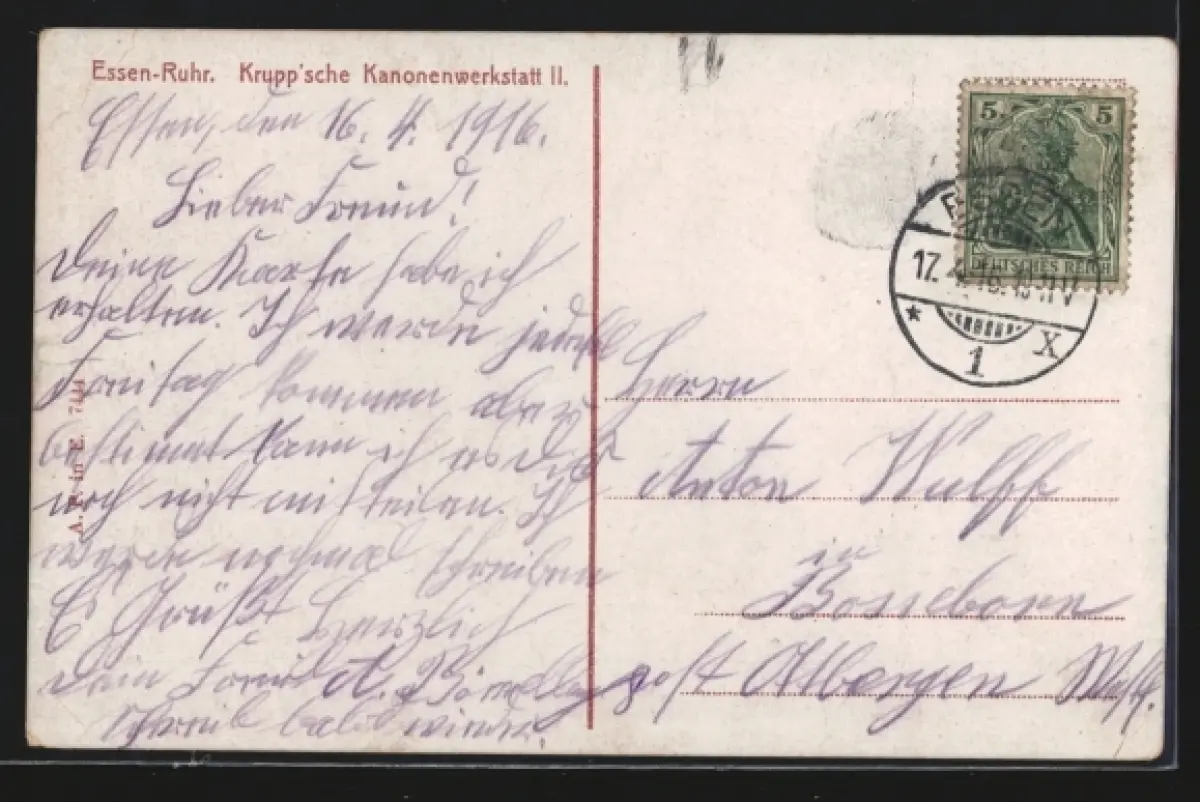 Essen-Ruhr. Krupp'sche Kanonenwerkstatt II.
Essen, den 16. 4. 1916.
Lieber Freund!
Deine Karte habe ich
erhalten. Ich werde
Freitag kommen aber
bestimmt kann ich es dir
noch nicht mitteilen. Ich
werde nochmal schreiben
Es Grüßt Herzlich
dein Freund A.
Schreib bald wieder.
A. in E.
5 5
DEUTSCHES REICH
ESSEN
17. 4. 16.
* 1 X
Herrn
Anton Wulff
in
Bosseborn
post Albaxen Westf.